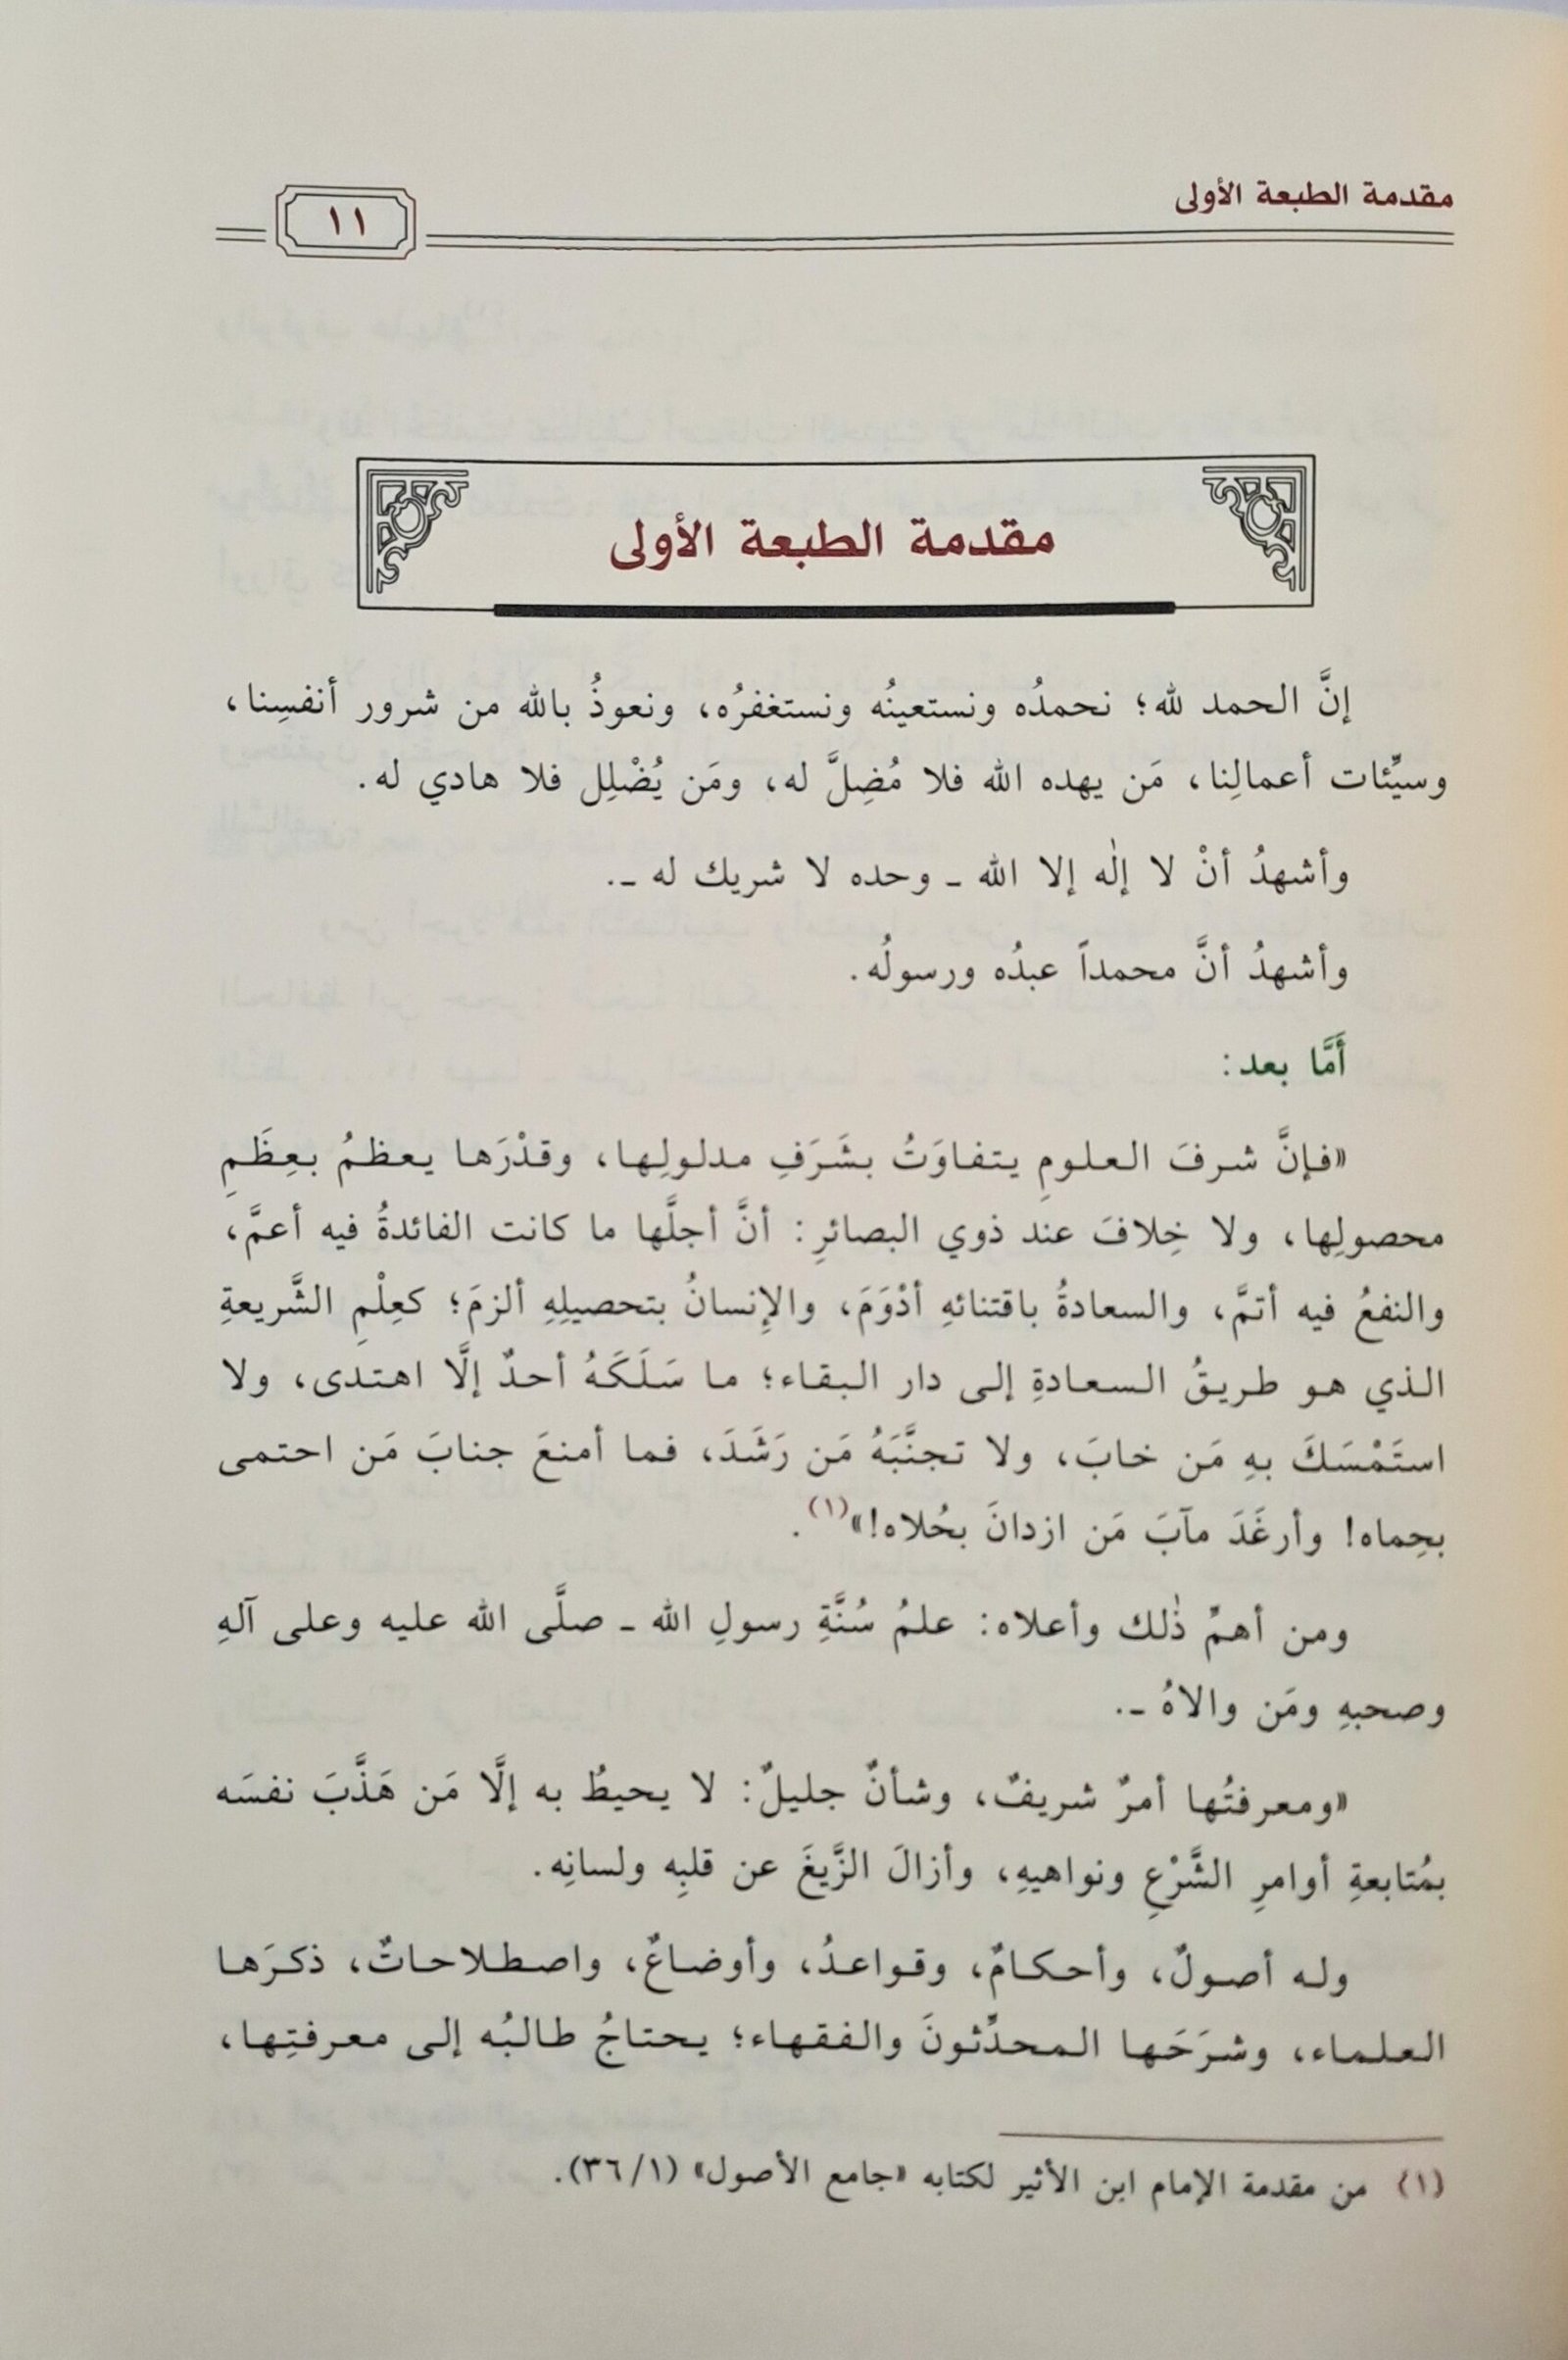 مقدمة الطبعة الأولى
١١
مقدمة الطبعة الأولى
إنَّ الحمد لله؛ نحمدُه ونستعينُه ونستغفرُه، ونعوذُ بالله من شرور أنفسِنا،
وسيِّئات أعمالِنا، مَن يهده الله فلا مُضِلَّ له، ومَن يُضْلِل فلا هادي له.
وأشهدُ أنْ لا إلٰه إلا الله ـ وحده لا شريك له ـ.
وأشهدُ أنَّ محمداً عبدُه ورسولُه.
أَمَّا بعد:
«فإنَّ شرفَ العلومِ يتفاوَتُ بشَرَفِ مدلولِها، وقدْرَها يعظمُ بعِظَمِ
محصولِها، ولا خِلافَ عند ذوي البصائرِ: أنَّ أجلَّها ما كانت الفائدةُ فيه أعمَّ،
والنفعُ فيه أتمَّ، والسعادةُ باقتنائهِ أدْوَمَ، والإِنسانُ بتحصيلِهِ ألزمَ؛ كعِلْمِ الشَّريعةِ
الذي هو طريقُ السعادةِ إلى دار البقاء؛ ما سَلَكَهُ أحدٌ إلَّا اهتدى، ولا
استَمْسَكَ بهِ مَن خابَ، ولا تجنَّبَهُ مَن رَشَدَ، فما أمنعَ جنابَ مَن احتمى
بحِماه! وأرغَدَ مآبَ مَن ازدانَ بحُلاه!»(١).
ومن أهمِّ ذٰلك وأعلاه: علمُ سُنَّةِ رسولِ الله ـ صلَّى الله عليه وعلى آلهِ
وصحبهِ ومَن والاهُ ـ.
«ومعرفتُها أمرٌ شريفٌ، وشأنٌ جليلٌ: لا يحيطُ به إلَّا مَن هَذَّبَ نفسَه
بمُتابعةِ أوامرِ الشَّرْعِ ونواهيهِ، وأزالَ الزَّيغَ عن قلبِه ولسانِه.
وله أصولٌ، وأحكامٌ، وقواعدُ، وأوضاعٌ، واصطلاحاتٌ، ذكرَها
العلماء، وشرَحَها المحدِّثونَ والفقهاء؛ يحتاجُ طالبُه إلى معرفتِها،
(١) من مقدمة الإمام ابن الأثير لكتابه «جامع الأصول» (٣٦/١).